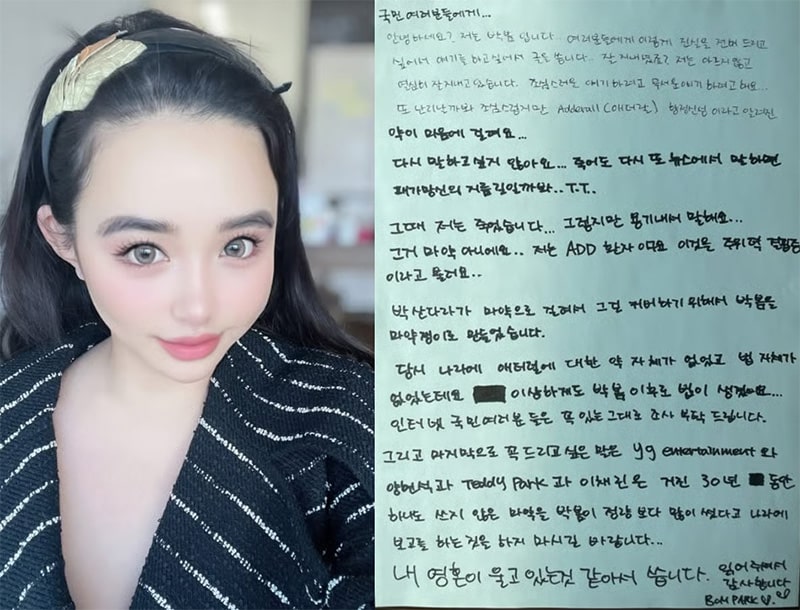 국민 여러분들에게...
안녕하세요? 저는 박봄 입니다.. 여러분들에게 이렇게 진실을 전해 드리고
싶어서 얘기를 하고싶어서 글을 씁니다.. 잘 지내셨죠? 저는 아프지 않고
열심히 잘지내고 있습니다. 조심스러운 얘기 하려고 무서운 얘기 하려고 해요...
또 난리날까봐 조심스럽지만 Adderall (애더럴) 형정신성 이라고 알려진
약이 마음에 걸려요...
다시 말하고 싶지 않아요... 죽어도 다시 또 뉴스에서 말하면
패가망신의 지름길일까봐.. T.T..
그때 저는 죽었습니다... 그렇지만 용기내서 말해요...
그거 마약 아니에요.. 저는 ADD 환자 이며 이것을 주위력 결핍증
이라고 불러요..
박산다라가 마약으로 걸려서 그걸 커버하기 위해서 박봄을
마약쟁이로 만들었습니다.
당시 나라에 애더럴에 대한 약 자체가 없었고 법 자체가
없었는데요 이상하게도 박봄 이후로 법이 생겼어요...
인터넷 국민여러분 들은 꼭 있는 그대로 조사 부탁 드립니다.
그리고 마지막으로 꼭 드리고 싶은 말은 yg entertainment 와
양현석과 Teddy Park 과 이채린은 거진 30년 동안
하나도 쓰지 않은 마약을 박봄이 정량 보다 많이 썼다고 나라에
보고를 하는것을 하지 마시길 바랍니다...
내 영혼이 울고 있는것 같아서 씁니다. 읽어주셔서
감사합니다
BOM PARK